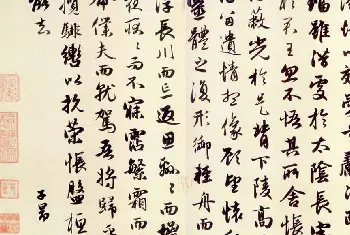 雖潛處於太陰長寄
於君王忽不悟其所舍悵
蔽光於是背下陵高
留遺情想像顧望懷
靈體之復形御輕舟而
浮長川而忘返思綿綿而增
夜耿耿而不寐霑繁霜而
命僕夫而就駕吾將歸乎
攬騑轡以抗策悵盤桓
能去
子昂